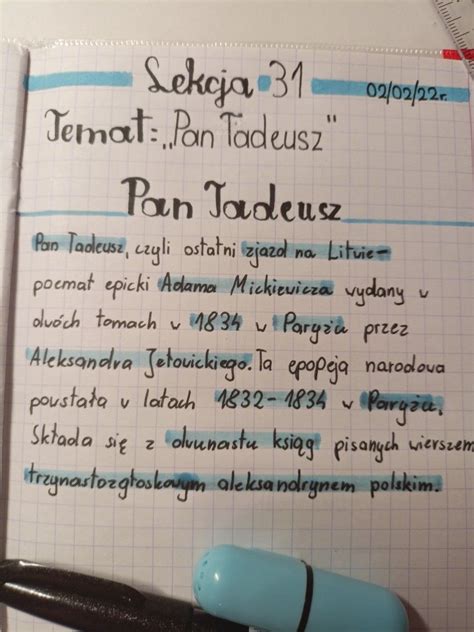 Lekcja 31 02/02/22r.
Temat: „Pan Tadeusz"
Pan Tadeusz
Pan Tadeusz, czyli ostatni zjazd na Litwie-
poemat epicki Adama Mickiewicza wydany w
dwóch tomach w 1834 w Paryżu przez
Aleksandra Jełowickiego. Ta epopeja narodowa
powstała w latach 1832-1834 w Paryżu.
Składa się z dwunastu ksiąg pisanych wierszem
trzynastozgłoskowym aleksandrynem polskim.